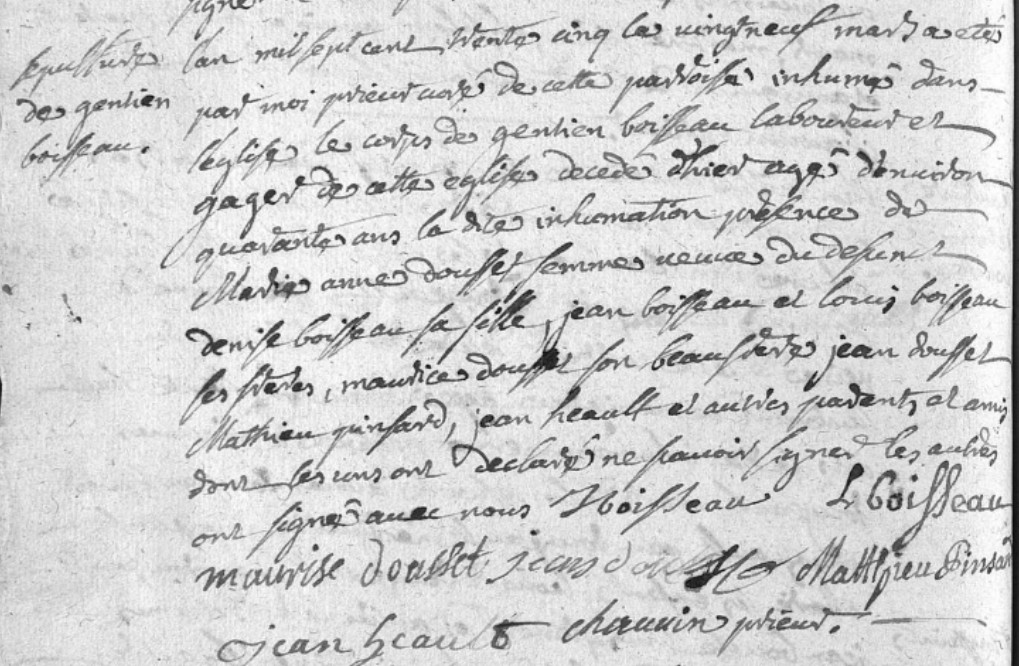 signé
sepulture
de gentien
boisseau.
lan mil sept cent trente cinq le vingt neuf mars a eté
par moi prieur curé de cette parroisse inhumé dans
leglise le corps de gentien boisseau laboureur et
gager de cette eglise decedé dhier agé denviron
quarante ans la dite inhumation presence de
Marie anne dousset femme veuve du defunt
denise boisseau sa fille, jean boisseau et louis boisseau
ses freres, maurice dousset son beaufrere jean dousset
Mathieu pinsard, jean heault et autres parents et amis
dont les uns ont declaré ne scavoir signer les autres
ont signé avec nous J boisseau L boisseau
maurise dousset jean dousset Matthieu Pinsard
jean heault chauvin prieur.